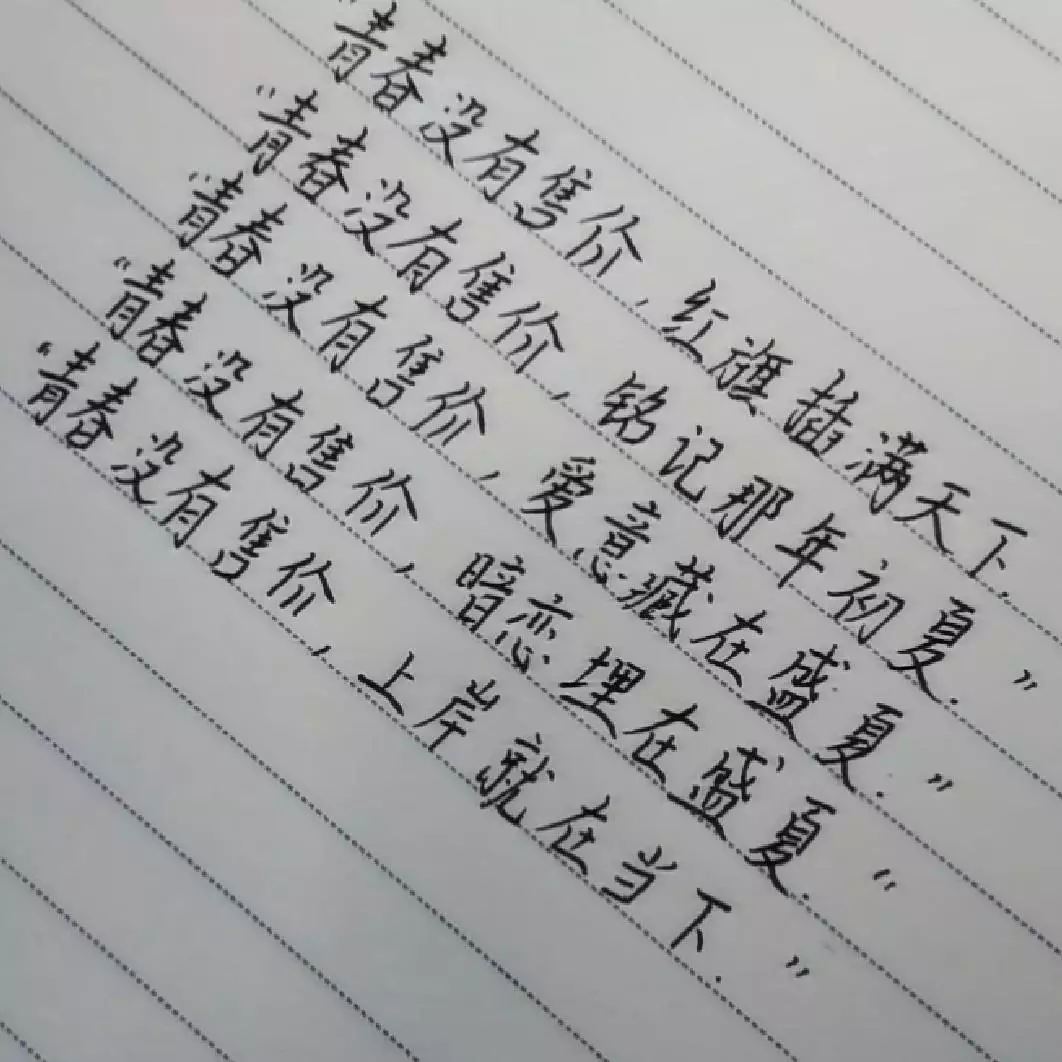 “青春没有售价,红旗插满天下.
“青春没有售价,铭记那年初夏.”
“青春没有售价,爱意藏在盛夏.”
“青春没有售价,暗恋埋在盛夏.”
“青春没有售价,上岸就在当下.”